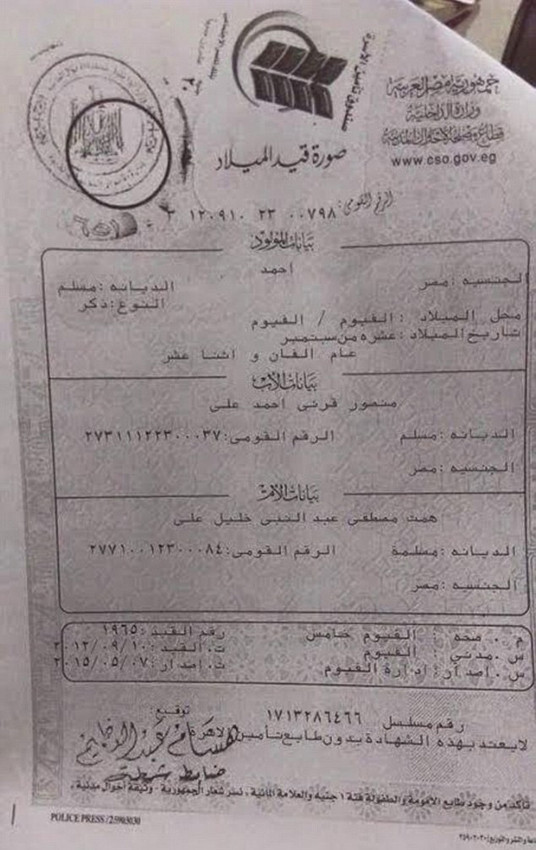 جمهورية مصر العربية
وزارة الداخلية
قطاع مصلحة الأحوال المدنية
www.cso.gov.eg
صندوق تأمين الأسرة
صورة قيد الميلاد
الرقم القومى: ٣ ١٢٠٩١٠ ٢٣ ٠٠٧٩٨
بيانات المولود
احمد
الجنسيه :مصر الديانه :مسلم
النوع :ذكر
محل الميلاد :الفيوم / الفيوم
تاريخ الميلاد :عشره من سبتمبر
عام الفان و اثنا عشر
بيانات الأب
منصور قرنى احمد على
الديانه :مسلم الرقم القومى:٢٧٣١١١٢٢٣٠٠٠٣٧
الجنسيه :مصر
بيانات الأم
همت مصطفى عبد النبى خليل على
الديانه :مسلمة الرقم القومى:٢٧٧١٠٠١٢٣٠٠٠٨٤
الجنسيه :مصر
م . صحه : الفيوم خامس رقم القيد :١٩٦٥
س .مدني : الفيوم ت.القيد :٢٠١٢/٠٩/١٠
س .إصدار: إدارة الفيوم ت.إصدار :٢٠١٥/٠٥/٠٧
رقم مسلسل ١٧١٣٢٨٦٤٦٦ توقيع:
لايعتد بهذه الشهادة بدون طابع تأمين لاهرة
ضابط شرطة
تأكد من وجود طابع الأمومة والطفولة فئة ١ جنيه والعلامة المائية ، نسر شعار الجمهورية - وثيقة أحوال مدنية .
POLICE PRESS /25903030